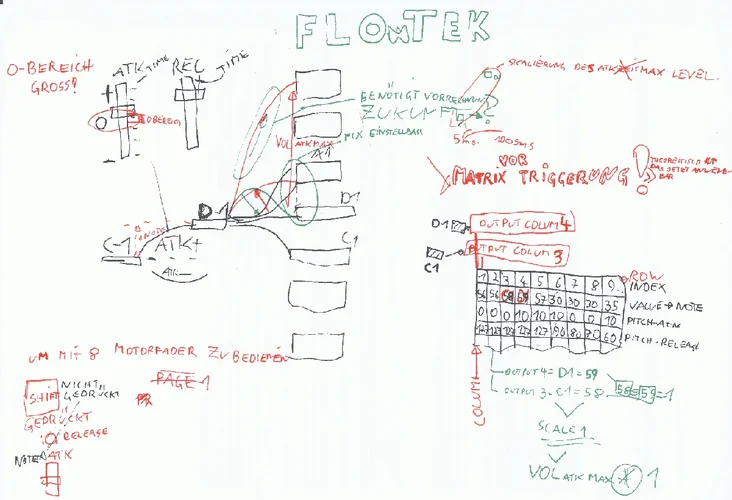 FLOWTEK
O-BEREICH
GROSS!
ATK TIME
REL TIME
+
O
O BEREICH
-
BENÖTIGT VORRECHNUNG
ZUKUNFT
VOL ATK MAX
FIX EINSTELLBAR
SKALIERUNG DES ATK ZEIT MAX LEVEL.
5 ms.
VOR
MATRIX TRIGGERUNG!
A1
D1
C1
D-1
C-1
ATK+
ATK-
D1
OUTPUT COLUM 4
OUTPUT COLUM 3
C1
ROW
1 2 3 4 5 6 7 8 9 INDEX
56 56 58 59 57 30 30 20 35 VALUE → NOTE
0 0 0 10 10 10 0 0 10 PITCH-ATK
127 127 127 127 127 90 80 70 60 PITCH-RELEASE
COLUM
OUTPUT 4 = D1 = 59
OUTPUT 3 = C1 = 58
58 = 59 = 1
SCALE 1
VOL ATK MAX 1
UM MIT 8 MOTORFADER ZU BEDIENEN
PAGE 1
SHIFT
NICHT GEDRÜCKT
GEDRÜCKT
RELEASE
NOTEN ATK